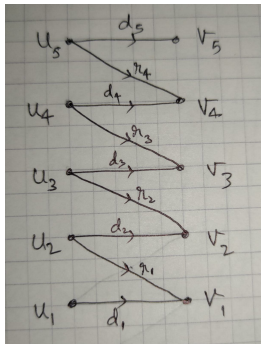 u₅ d₅ v₅
r₄
u₄ d₄ v₄
r₃
u₃ d₃ v₃
r₂
u₂ d₂ v₂
r₁
u₁ d₁ v₁